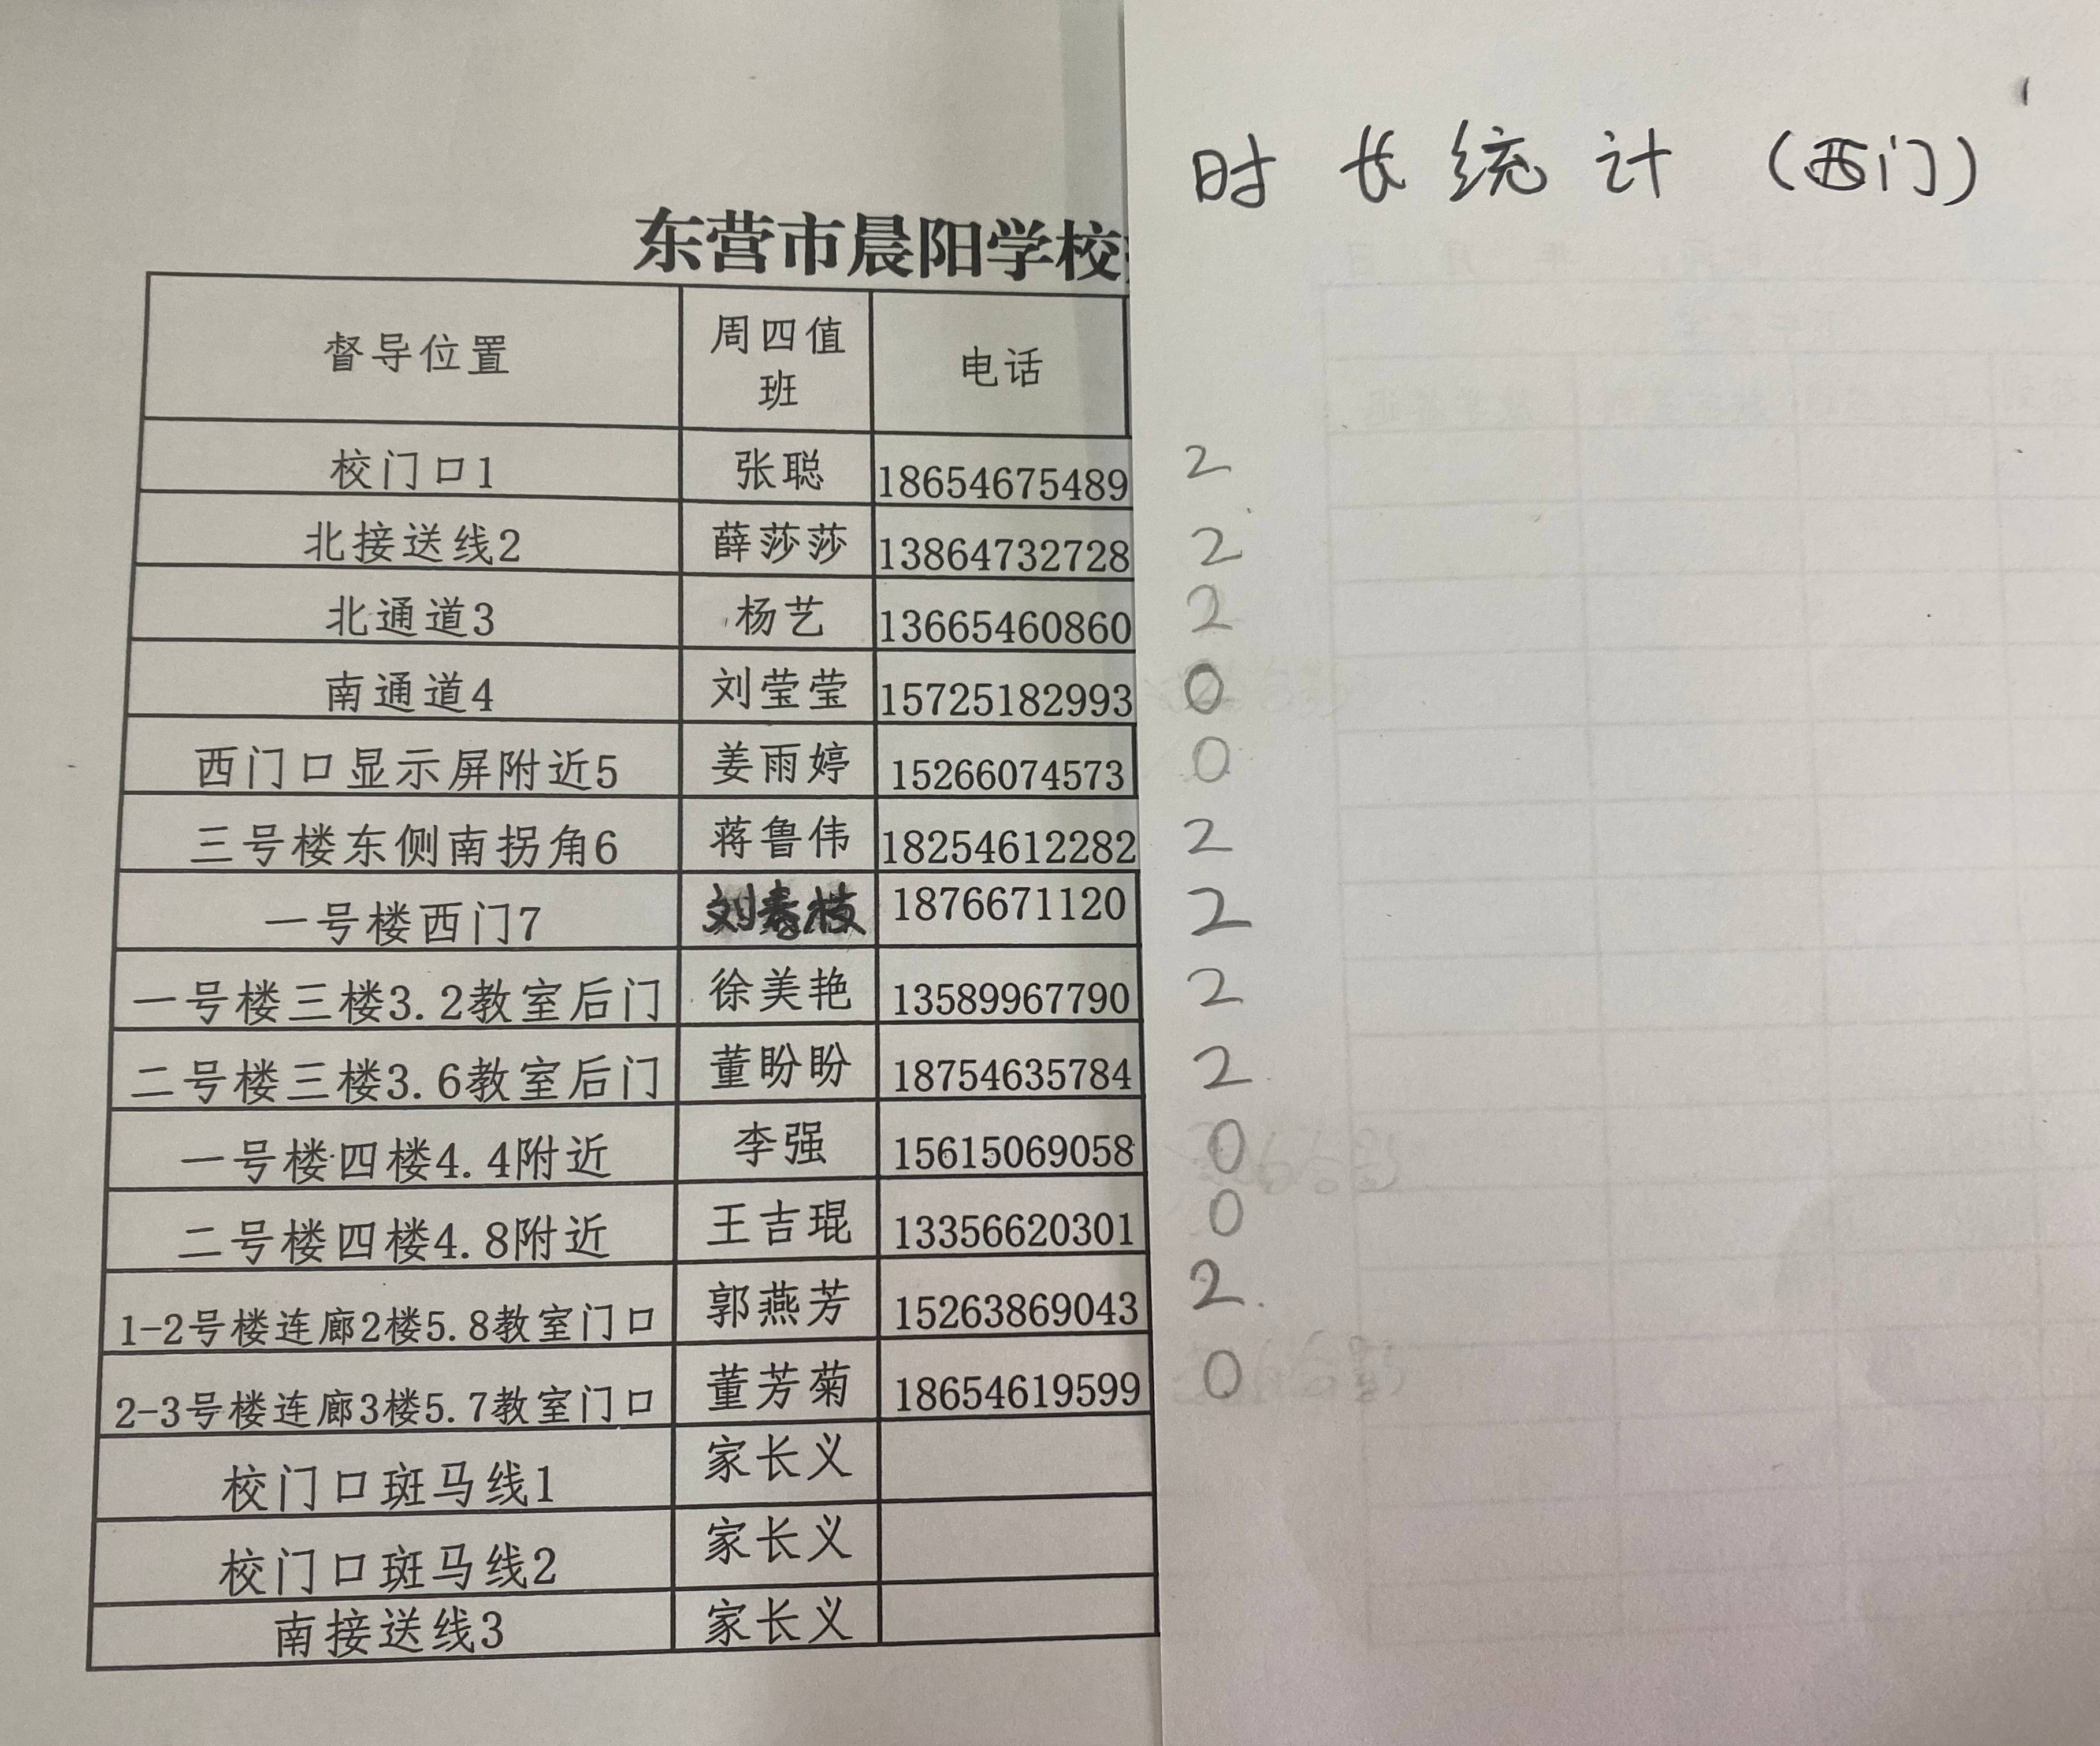 时长统计（西门）
东营市晨阳学校
督导位置 周四值班 电话
校门口1 张聪 18654675489 2
北接送线2 薛莎莎 13864732728 2
北通道3 杨艺 13665460860 2
南通道4 刘莹莹 15725182993 0
西门口显示屏附近5 姜雨婷 15266074573 0
三号楼东侧南拐角6 蒋鲁伟 18254612282 2
一号楼西门7 刘春枝 1876671120 2
一号楼三楼3.2教室后门 徐美艳 13589967790 2
二号楼三楼3.6教室后门 董盼盼 18754635784 2
一号楼四楼4.4附近 李强 15615069058 0
二号楼四楼4.8附近 王吉琨 13356620301 0
1-2号楼连廊2楼5.8教室门口 郭燕芳 15263869043 2.
2-3号楼连廊3楼5.7教室门口 董芳菊 18654619599 0
校门口斑马线1 家长义
校门口斑马线2 家长义
南接送线3 家长义